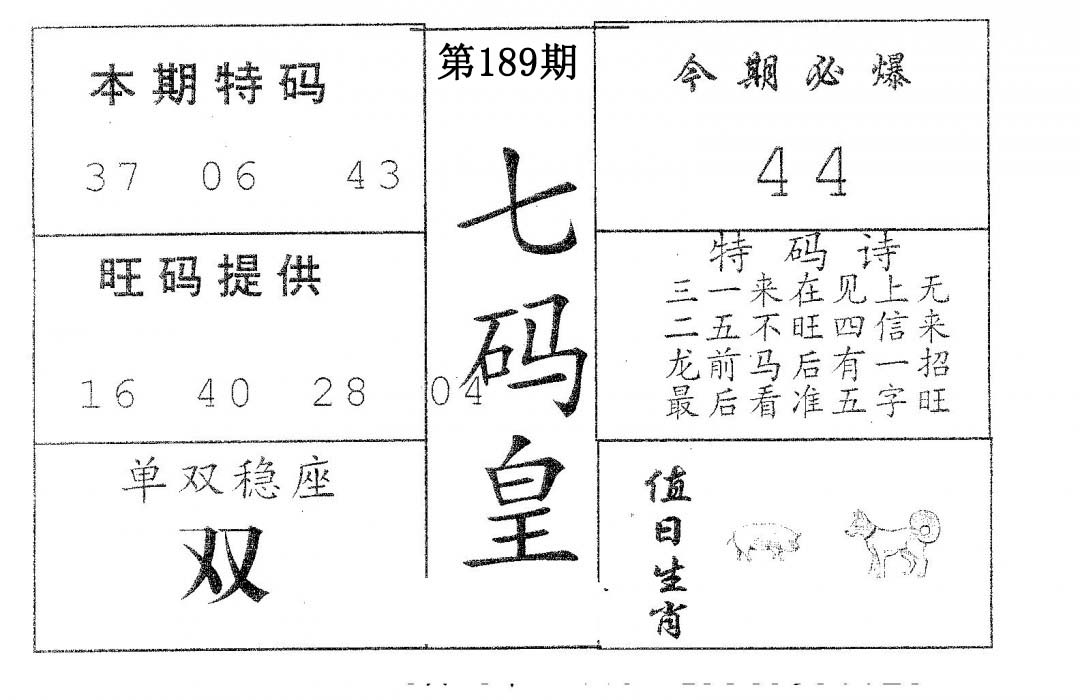 本期特码
37 06 43
旺码提供
16 40 28 04
单双稳座
双
第189期
七码皇
今期必爆
44
特码诗
三一来在见上无
二五不旺四信来
龙前马后有一招
最后看准五字旺
值日生肖